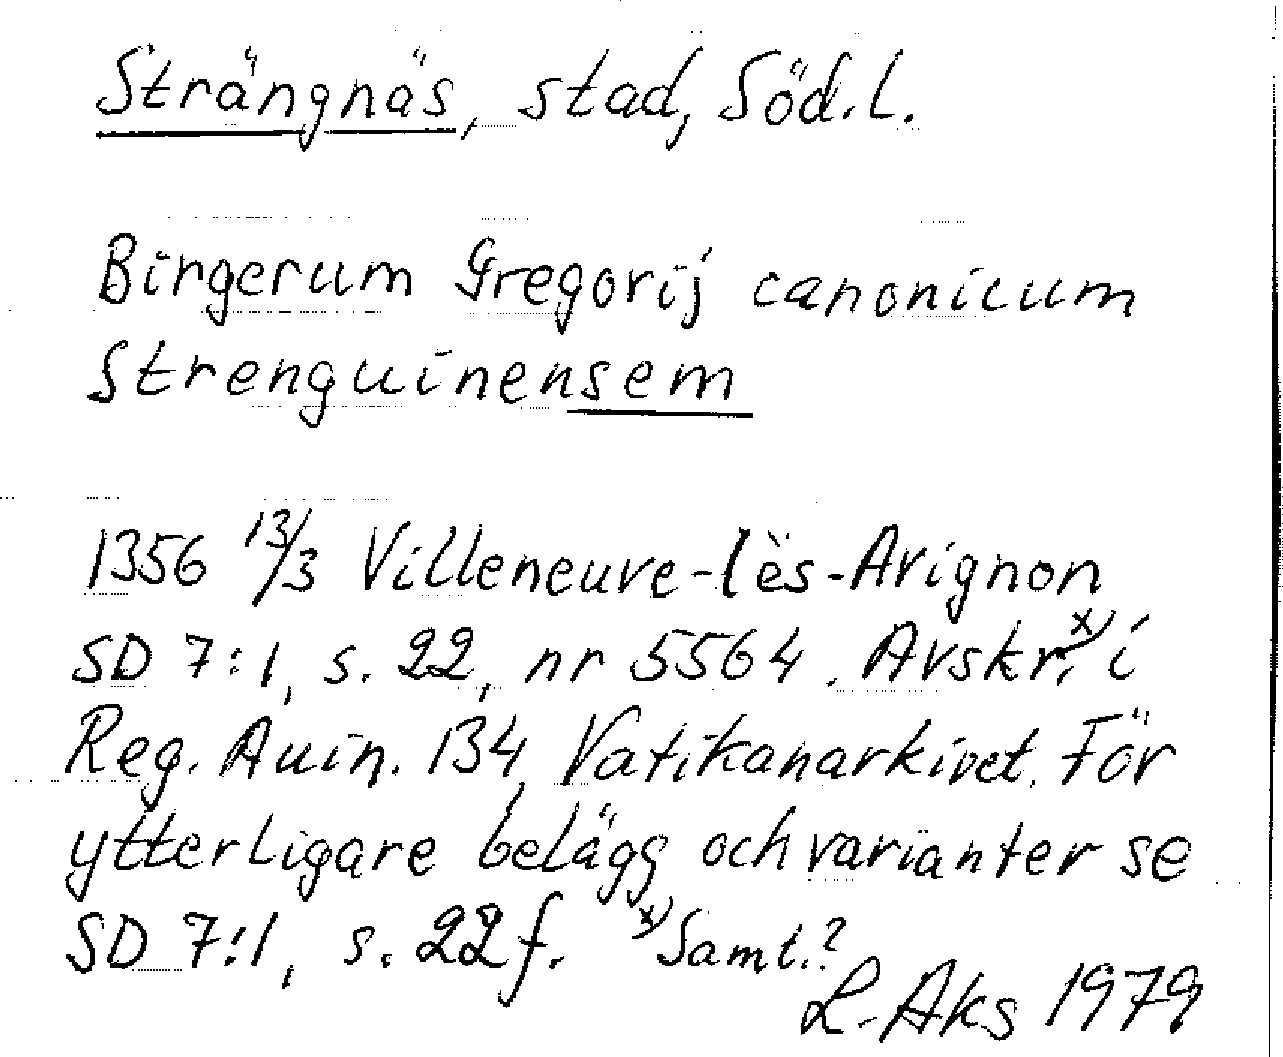 Strängnäs, stad, Söd.l.
Birgerum Gregorij canonicum
Strenguinensem
1356 13/3 Villeneuve-lès-Avignon
SD 7:1, s. 22, nr 5564. Avskr.x) i
Reg. Auin. 134, Vatikanarkivet. För
ytterligare belägg och varianter se
SD 7:1, s. 22 f. x) Samt.?
L. Aks 1979